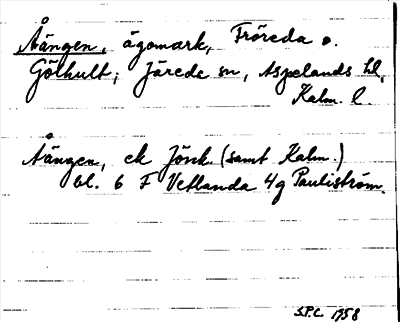 Åängen, ägomark, Fröreda o.
Gölhult; Järeda sn, Aspelands hd,
Kalm. l.
Åängen, ek Jönk. (samt Kalm.)
bl. 6 F Vetlanda 4g Pauliström.
S.P.C. 1958